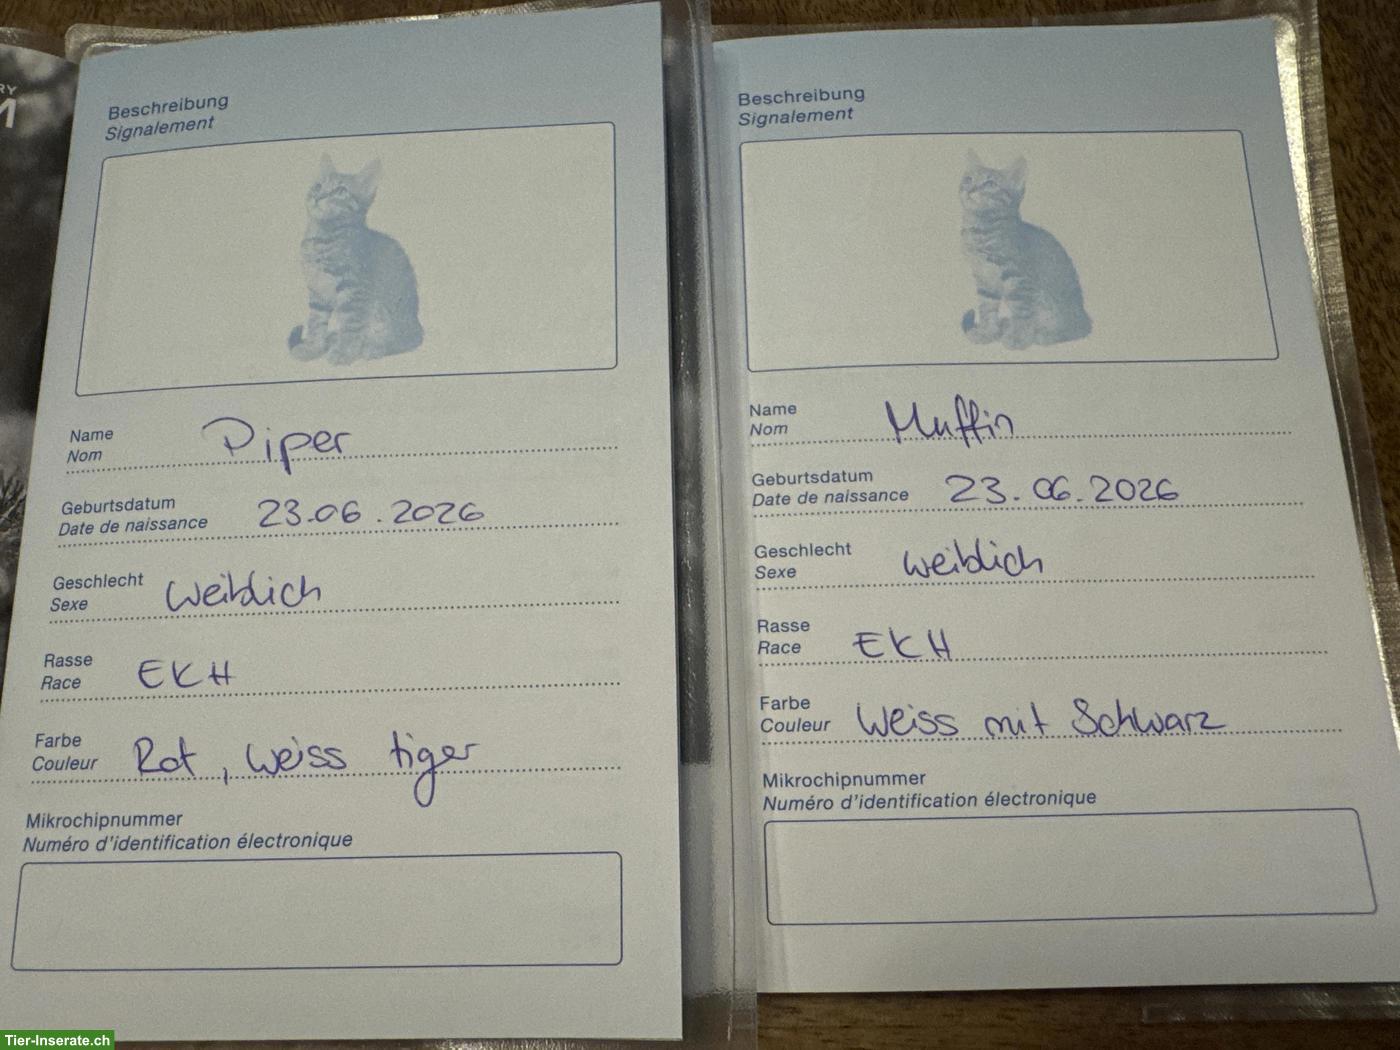 RY
M
Beschreibung
Signalement
Name
Nom
Piper
Geburtsdatum
Date de naissance
23.06.2026
Geschlecht
Sexe
weiblich
Rasse
Race
EKH
Farbe
Couleur
Rot, weiss tiger
Mikrochipnummer
Numéro d'identification électronique
Beschreibung
Signalement
Name
Nom
Muffin
Geburtsdatum
Date de naissance
23.06.2026
Geschlecht
Sexe
weiblich
Rasse
Race
EKH
Farbe
Couleur
Weiss mit Schwarz
Mikrochipnummer
Numéro d'identification électronique
Tier-Inserate.ch